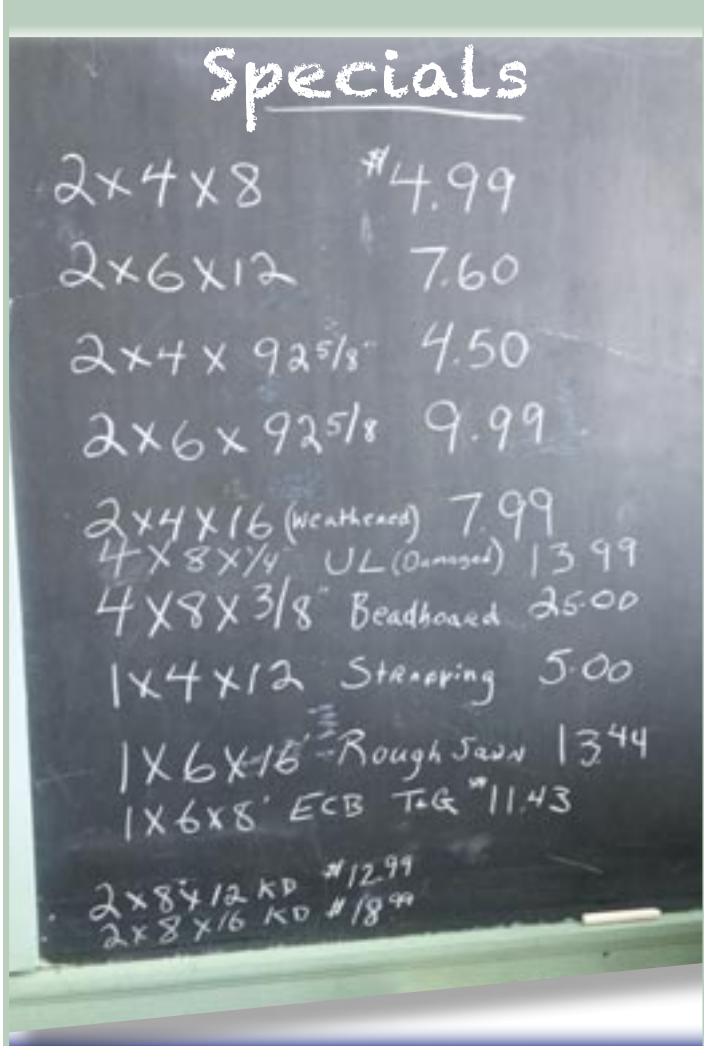 Specials
2x4x8 $4.99
2x6x12 7.60
2x4x 92 5/8" 4.50
2x6x 92 5/8 9.99
2x4x16 (weathered) 7.99
4x8x1/4" UL (Damaged) 13 99
4x8x3/8" Beadboard 25.00
1x4x12 Strapping 5.00
1x6x16' Rough Sawn 13.44
1x6x8' ECB T&G $11.43
2x8x12 KD $12.99
2x8x16 KD $18.99